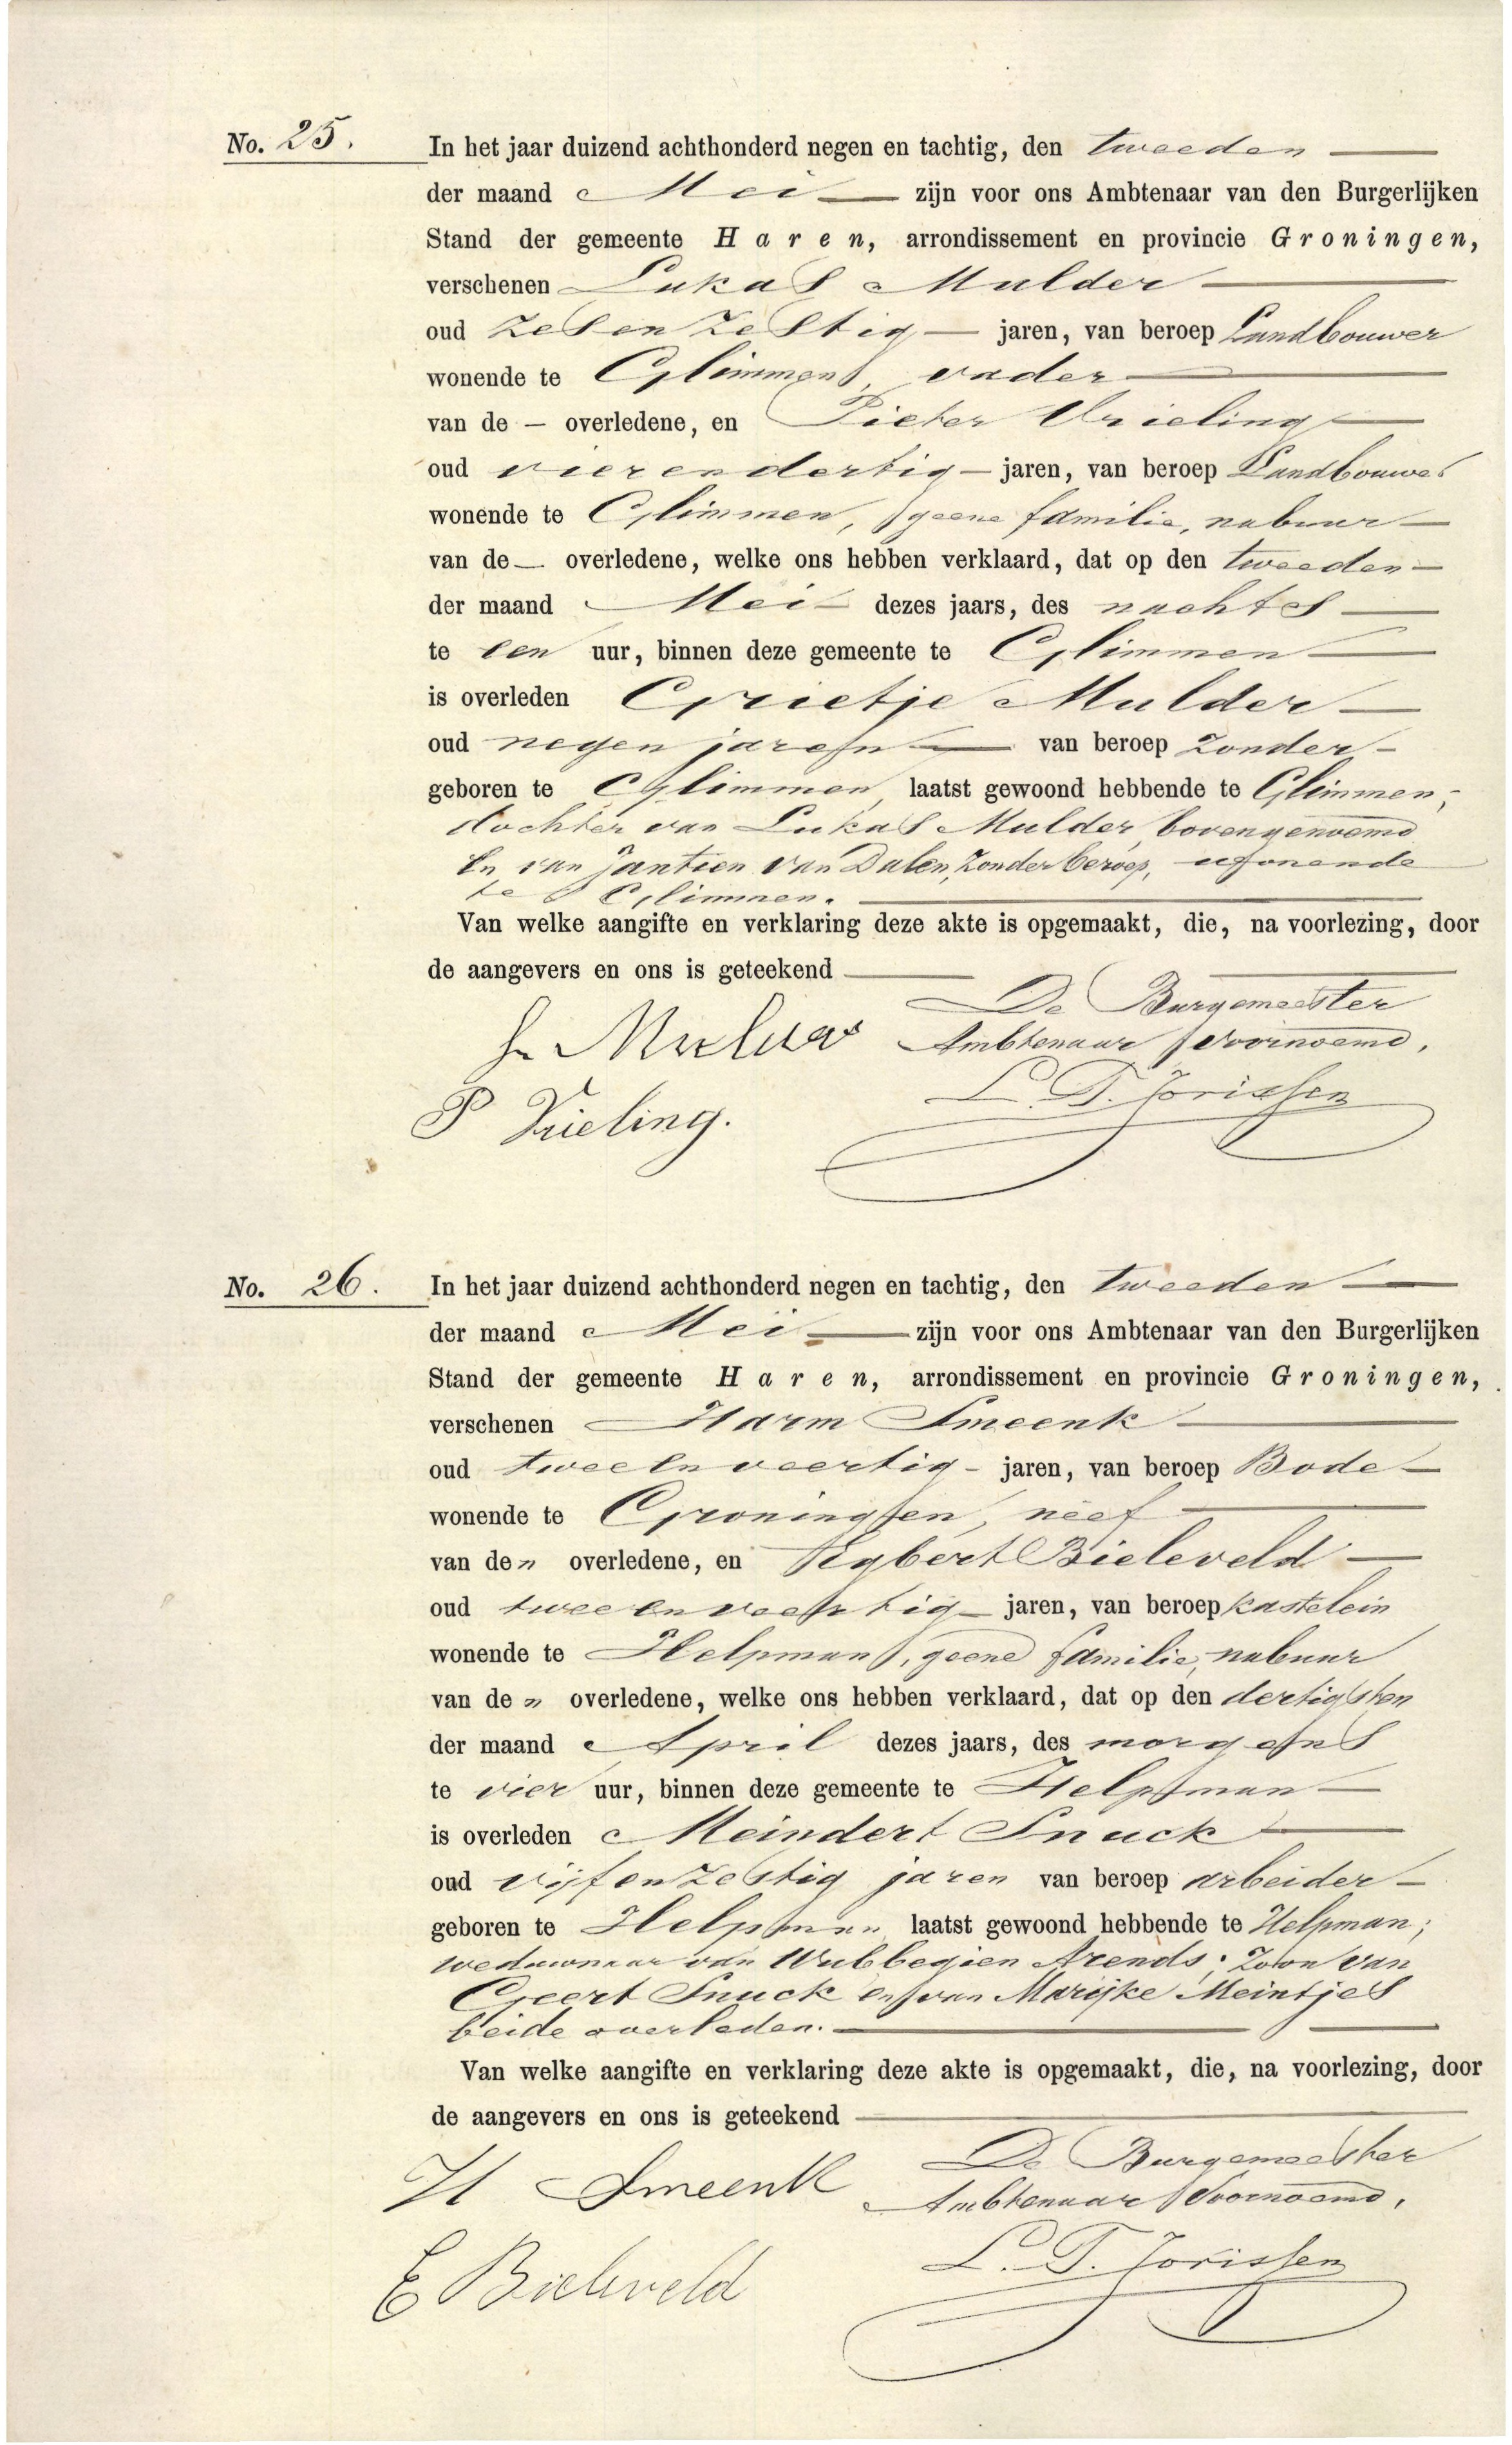 No. 25. In het jaar duizend achthonderd negen en tachtig, den tweeden
der maand Mei zijn voor ons Ambtenaar van den Burgerlijken
Stand der gemeente Haren, arrondissement en provincie Groningen,
verschenen Lukas Mulder
oud zesenzestig jaren, van beroep Landbouwer
wonende te Glimmen, vader
van de — overledene, en Pieter Vrieling
oud vierendertig jaren, van beroep Landbouwer
wonende te Glimmen, geene familie, nabuur
van de — overledene, welke ons hebben verklaard, dat op den tweeden
der maand Mei dezes jaars, des nachts
te een uur, binnen deze gemeente te Glimmen
is overleden Grietje Mulder
oud negen jaren van beroep zonder
geboren te Glimmen, laatst gewoond hebbende te Glimmen;
dochter van Lukas Mulder bovengenoemd
en van Jantien van Dalen, zonder beroep, wonende
te Glimmen.
Van welke aangifte en verklaring deze akte is opgemaakt, die, na voorlezing, door
de aangevers en ons is geteekend
De Burgemeester
Ambtenaar voornoemd,
L Mulder
L. T. Jorissen
P Vrieling.
No. 26. In het jaar duizend achthonderd negen en tachtig, den tweeden
der maand Mei zijn voor ons Ambtenaar van den Burgerlijken
Stand der gemeente Haren, arrondissement en provincie Groningen,
verschenen Harm Smeenk
oud tweeenveertig jaren, van beroep Bode
wonende te Groningen, neef
van den overledene, en Egbert Bieleveld
oud tweeenveertig jaren, van beroep kastelein
wonende te Helpman, geene familie, nabuur
van de n overledene, welke ons hebben verklaard, dat op den dertigsten
der maand April dezes jaars, des morgens
te vier uur, binnen deze gemeente te Helpman
is overleden Meindert Snuck
oud vijfenzestig jaren van beroep arbeider
geboren te Helpman laatst gewoond hebbende te Helpman;
weduwnaar van Wubbegien Arends; Zoon van
Geert Snuck en van Marijke Meintjes
beide overleden.
Van welke aangifte en verklaring deze akte is opgemaakt, die, na voorlezing, door
de aangevers en ons is geteekend
De Burgemeester
H Smeenk
Ambtenaar voornoemd,
L. T. Jorissen
E Bieleveld